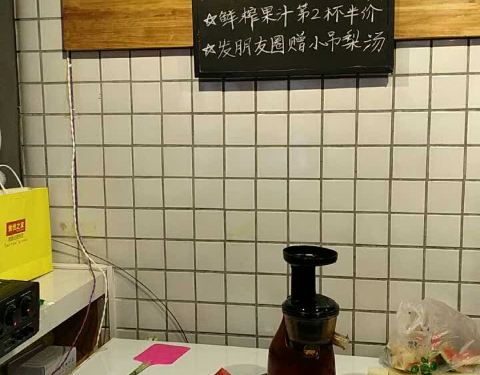 ☆鲜榨果汁第2杯半价
☆发朋友圈赠小吊梨汤